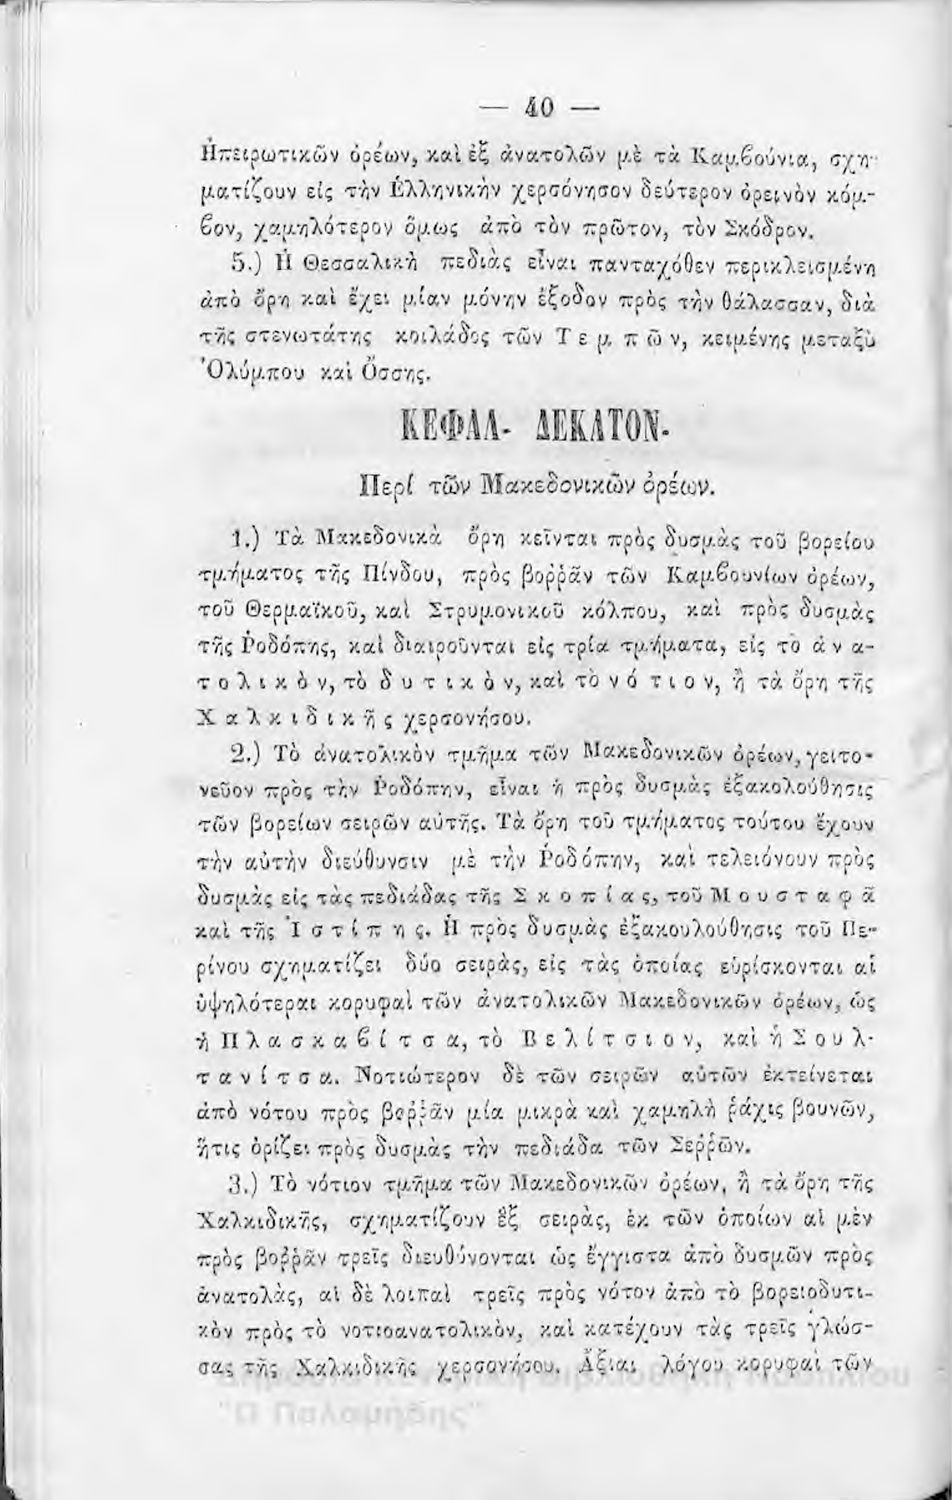 — 40 —
Ἠπειρωτικῶν ὀρέων, καὶ ἐξ ἀνατολῶν μὲ τὰ Καμβούνια, σχη-
ματίζουν εἰς τὴν Ἑλληνικὴν χερσόνησον δεύτερον ὀρεινὸν κόμ-
βον, χαμηλότερον ὅμως ἀπὸ τὸν πρῶτον, τὸν Σκόδρον.
5.) Ἡ Θεσσαλικὴ πεδιὰς εἶναι πανταχόθεν περικλεισμένη
ἀπὸ ὄρη καὶ ἔχει μίαν μόνην ἔξοδον πρὸς τὴν θάλασσαν, διὰ
τῆς στενωτάτης κοιλάδος τῶν Τ ε μ π ῶ ν, κειμένης μεταξὺ
Ὀλύμπου καὶ Ὄσσης.
ΚΕΦΑΛ. ΔΕΚΑΤΟΝ.
Περί τῶν Μακεδονικῶν ὀρέων.
1.) Τὰ Μακεδονικὰ ὄρη κεῖνται πρὸς δυσμὰς τοῦ βορείου
τμήματος τῆς Πίνδου, πρὸς βοῤῥᾶν τῶν Καμβουνίων ὀρέων,
τοῦ Θερμαϊκοῦ, καὶ Στρυμονικοῦ κόλπου, καὶ πρὸς δυσμὰς
τῆς Ῥοδόπης, καὶ διαιροῦνται εἰς τρία τμήματα, εἰς τὸ ἀ ν α-
τ ο λ ι κ ὸ ν, τὸ δ υ τ ι κ ὸ ν, καὶ τὸ ν ό τ ι ο ν, ἢ τὰ ὄρη τῆς
Χ α λ κ ι δ ι κ ῆ ς χερσονήσου.
2.) Τὸ ἀνατολικὸν τμῆμα τῶν Μακεδονικῶν ὀρέων, γειτο-
νεῦον πρὸς τὴν Ῥοδόπην, εἶναι ἡ πρὸς δυσμὰς ἐξακολούθησις
τῶν βορείων σειρῶν αὐτῆς. Τὰ ὄρη τοῦ τμήματος τούτου ἔχουν
τὴν αὐτὴν διεύθυνσιν μὲ τὴν Ῥοδόπην, καὶ τελειόνουν πρὸς
δυσμὰς εἰς τὰς πεδιάδας τῆς Σ κ ο π ί α ς, τοῦ Μ ο υ σ τ α φ ᾶ
καὶ τῆς Ἰ σ τ ί π η ς. Ἡ πρὸς δυσμὰς ἐξακουλούθησις τοῦ Πε-
ρίνου σχηματίζει δύο σειρὰς, εἰς τὰς ὁποίας εὑρίσκονται αἱ
ὑψηλότεραι κορυφαὶ τῶν ἀνατολικῶν Μακεδονικῶν ὀρέων, ὡς
ἡ Π λ α σ κ α β ί τ σ α, τὸ Β ε λ ί τ σ ι ο ν, καὶ ἡ Σ ο υ λ-
τ α ν ί τ σ α. Νοτιώτερον δὲ τῶν σειρῶν αὐτῶν ἐκτείνεται
ἀπὸ νότου πρὸς βοῤῥᾶν μία μικρὰ καὶ χαμηλὴ ῥάχις βουνῶν,
ἥτις ὁρίζει πρὸς δυσμὰς τὴν πεδιάδα τῶν Σεῤῥῶν.
3.) Τὸ νότιον τμῆμα τῶν Μακεδονικῶν ὀρέων, ἢ τὰ ὄρη τῆς
Χαλκιδικῆς, σχηματίζουν ἓξ σειρὰς, ἐκ τῶν ὁποίων αἱ μὲν
πρὸς βοῤῥᾶν τρεῖς διευθύνονται ὡς ἔγγιστα ἀπὸ δυσμῶν πρὸς
ἀνατολὰς, αἱ δὲ λοιπαὶ τρεῖς πρὸς νότον ἀπὸ τὸ βορειοδυτι-
κὸν πρὸς τὸ νοτιοανατολικὸν, καὶ κατέχουν τὰς τρεῖς γλώσ-
σας τῆς Χαλκιδικῆς χερσονήσου. Ἄξιαι λόγου κορυφαὶ τῶν
Δημόσια Κεντρική Βιβλιοθήκη Ναυπλίου
"Ο Παλαμήδης"